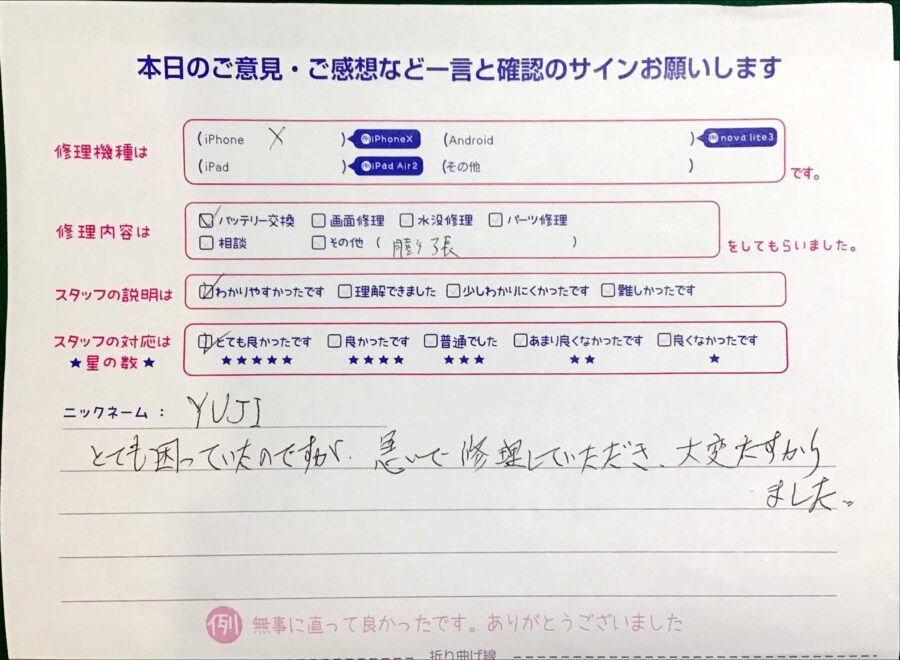 本日のご意見・ご感想など一言と確認のサインお願いします
修理機種は
(iPhone X ) 例iPhoneX (Android ) 例nova lite3
(iPad ) 例iPad Air2 (その他 ) です。
修理内容は
バッテリー交換 画面修理 水没修理 パーツ修理
相談 その他 ( 膨張 ) をしてもらいました。
スタッフの説明は わかりやすかったです 理解できました 少しわかりにくかったです 難しかったです
スタッフの対応は とても良かったです 良かったです 普通でした あまり良くなかったです 良くなかったです
★星の数★ ★★★★★ ★★★★ ★★★ ★★ ★
ニックネーム： YUJI
とても困っていたのですが、急いで修理していただき、大変たすかり
ました。
例 無事に直って良かったです。ありがとうございました
折り曲げ線